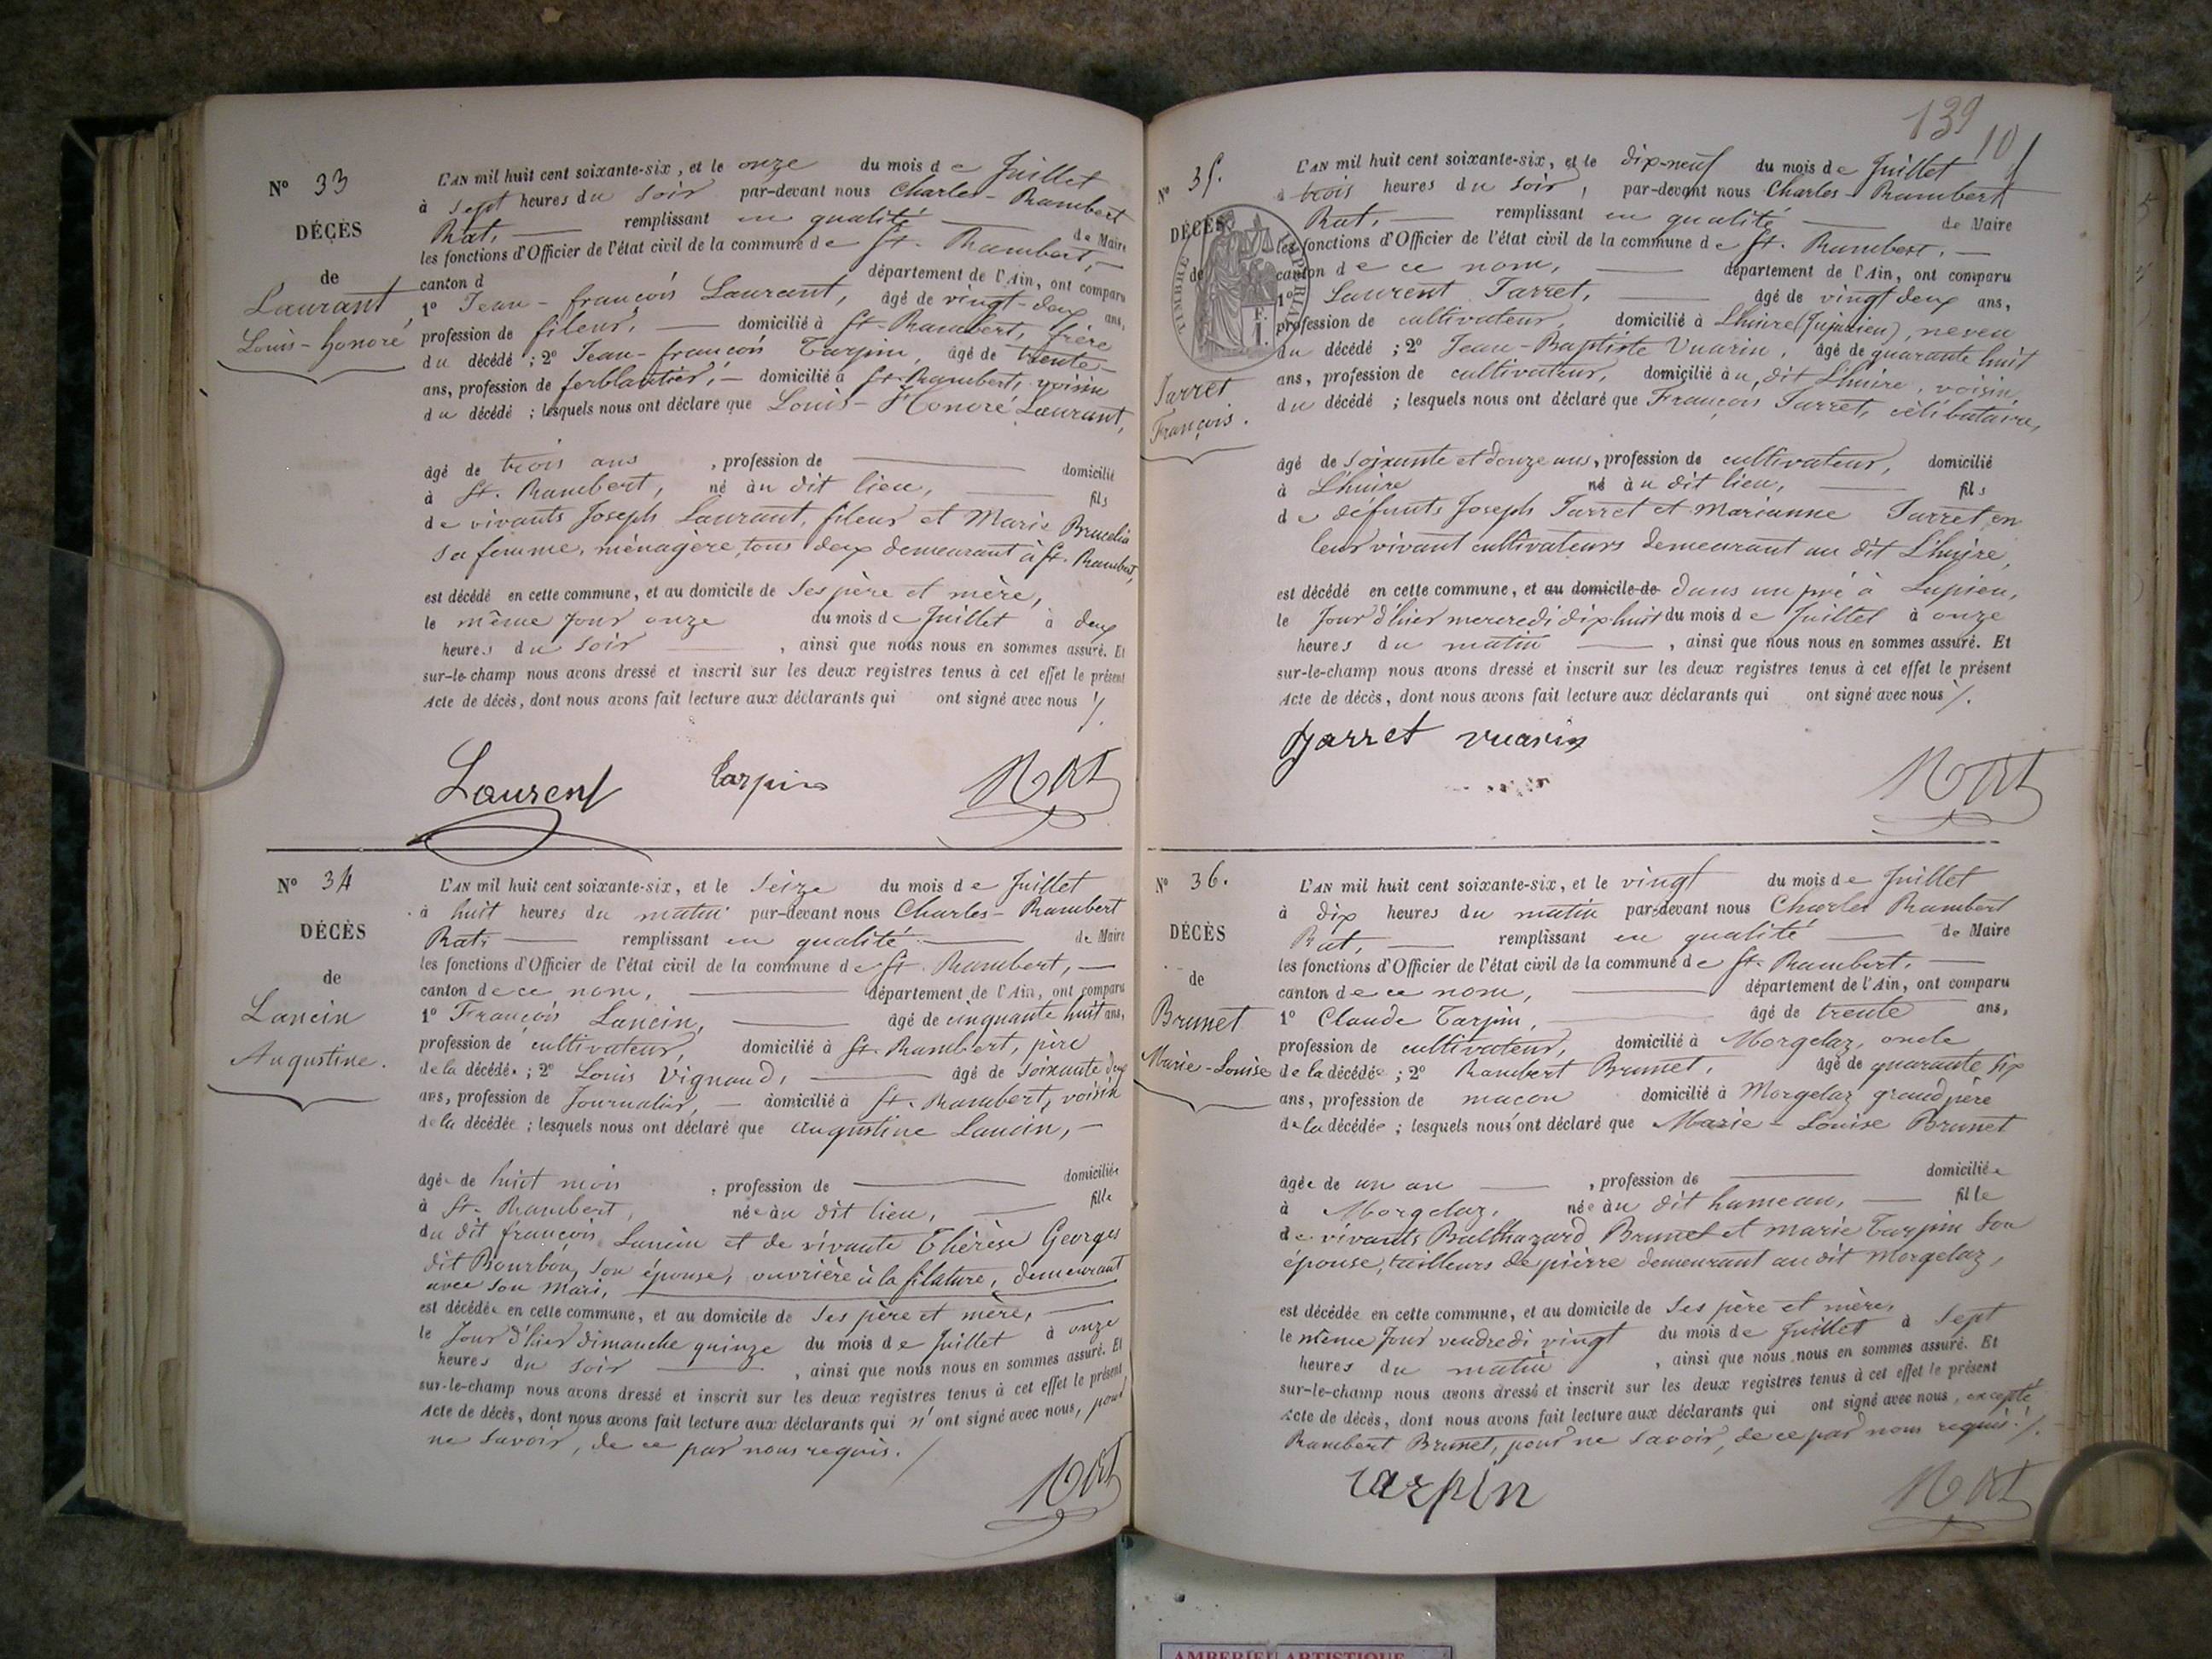 Nº 33
DÉCÈS
de
Laurant
Louis-honoré
L'AN mil huit cent soixante-six, et le onze du mois de Juillet
à Sept heures du Soir par-devant nous Charles-Rambert
Rat, remplissant en qualité de Maire
les fonctions d'Officier de l'état civil de la commune de St. Rambert,
canton d département de l'Ain, ont comparu
1º Jean-françois Laurant, âgé de vingt-deux ans,
profession de fileur, domicilié à St-Rambert, frère
du décédé ; 2º Jean-françois Tarpin, âgé de trente
ans, profession de ferblantier, domicilié à St-Rambert, voisin
du décédé ; lesquels nous ont déclaré que Louis-Honoré Laurant,
âgé de trois ans , profession de domicilié
à St. Rambert, né au dit lieu, fils
de vivants Joseph Laurant, fileur et Marie
sa femme, ménagère, tous deux demeurant à St. Rambert,
est décédé en cette commune, et au domicile de Ses père et mère,
le même Jour onze du mois de Juillet à deux
heures du Soir , ainsi que nous nous en sommes assuré. Et
sur-le-champ nous avons dressé et inscrit sur les deux registres tenus à cet effet le présent
Acte de décès, dont nous avons fait lecture aux déclarants qui ont signé avec nous /.
Laurent Tarpin Rat
Nº 34
DÉCÈS
de
Lancin
Augustine.
L'AN mil huit cent soixante-six, et le Seize du mois de Juillet
à huit heures du matin par-devant nous Charles-Rambert
Rat, remplissant en qualité de Maire
les fonctions d'Officier de l'état civil de la commune de St. Rambert,
canton de ce nom, département de l'Ain, ont comparu
1º François Lancin, âgé de cinquante huit ans,
profession de cultivateur, domicilié à St. Rambert, père
de la décédée ; 2º Louis Vignaud, âgé de Soixante deux
ans, profession de Journalier, domicilié à St. Rambert, voisin
de la décédée ; lesquels nous ont déclaré que augustine Lancin,
âgée de huit mois , profession de domiciliée
à St. Rambert, née au dit lieu, fille
du dit françois Lancin et de vivante Thérèse Georges
dit Bourbon, son épouse, ouvrière à la filature, demeurant
avec son mari,
est décédée en cette commune, et au domicile de Ses père et mère,
le Jour d'hier dimanche quinze du mois de Juillet à onze
heures du Soir , ainsi que nous nous en sommes assuré. Et
sur-le-champ nous avons dressé et inscrit sur les deux registres tenus à cet effet le présent
Acte de décès, dont nous avons fait lecture aux déclarants qui n'ont signé avec nous, pour
ne Savoir, de ce par nous requis. /
Rat
139
Nº 35.
DÉCÈS
de
TIMBRE IMPÉRIAL
Jarret
François.
L'AN mil huit cent soixante-six, et le dix-neuf du mois de Juillet
à trois heures du Soir, par-devant nous Charles-Rambert
Rat, remplissant en qualité de Maire
les fonctions d'Officier de l'état civil de la commune de St. Rambert,
canton de ce nom, département de l'Ain, ont comparu
1º Laurent Jarret, âgé de vingt deux ans,
profession de cultivateur, domicilié à Lhuire (Jujurieu), neveu
du décédé ; 2º Jean-Baptiste Vuarin, âgé de quarante huit
ans, profession de cultivateur, domicilié à u dit Lhuire, voisin
du décédé ; lesquels nous ont déclaré que François Jarret, célibataire,
âgé de Soixante et douze ans, profession de cultivateur, domicilié
à Lhuire né au dit lieu, fils
de défunts Joseph Jarret et Marianne Jarret en
leur vivant cultivateurs demeurant au dit Lhuire,
est décédé en cette commune, et au domicile de dans un pré à Lupieu,
le Jour d'hier mercredi dix huit du mois de Juillet à onze
heures du matin , ainsi que nous nous en sommes assuré. Et
sur-le-champ nous avons dressé et inscrit sur les deux registres tenus à cet effet le présent
Acte de décès, dont nous avons fait lecture aux déclarants qui ont signé avec nous /.
Jarret vuarin
Rat
Nº 36.
DÉCÈS
de
Brunet
Marie-Louise
L'AN mil huit cent soixante-six, et le vingt du mois de Juillet
à dix heures du matin par-devant nous Charles Rambert
Rat, remplissant en qualité de Maire
les fonctions d'Officier de l'état civil de la commune de St. Rambert,
canton de ce nom, département de l'Ain, ont comparu
1º Claude Tarpin, âgé de trente ans,
profession de cultivateur, domicilié à Morgelaz, oncle
de la décédée ; 2º Rambert Brunet, âgé de quarante six
ans, profession de macon domicilié à Morgelaz grand père
de la décédée ; lesquels nous ont déclaré que Marie-Louise Brunet
âgée de un an , profession de domiciliée
à Morgelaz, née au dit hameau, fille
de vivants Balthazard Brunet et marie Tarpin Son
épouse, tailleurs de pierre demeurant au dit Morgelaz,
est décédée en cette commune, et au domicile de Ses père et mère,
le même Jour vendredi vingt du mois de Juillet à Sept
heures du matin , ainsi que nous nous en sommes assuré. Et
sur-le-champ nous avons dressé et inscrit sur les deux registres tenus à cet effet le présent
Acte de décès, dont nous avons fait lecture aux déclarants qui ont signé avec nous, excepté
Rambert Brunet, pour ne Savoir, de ce par nous requis. /.
Tarpin Rat
AMBERIEU ARTISTIQUE